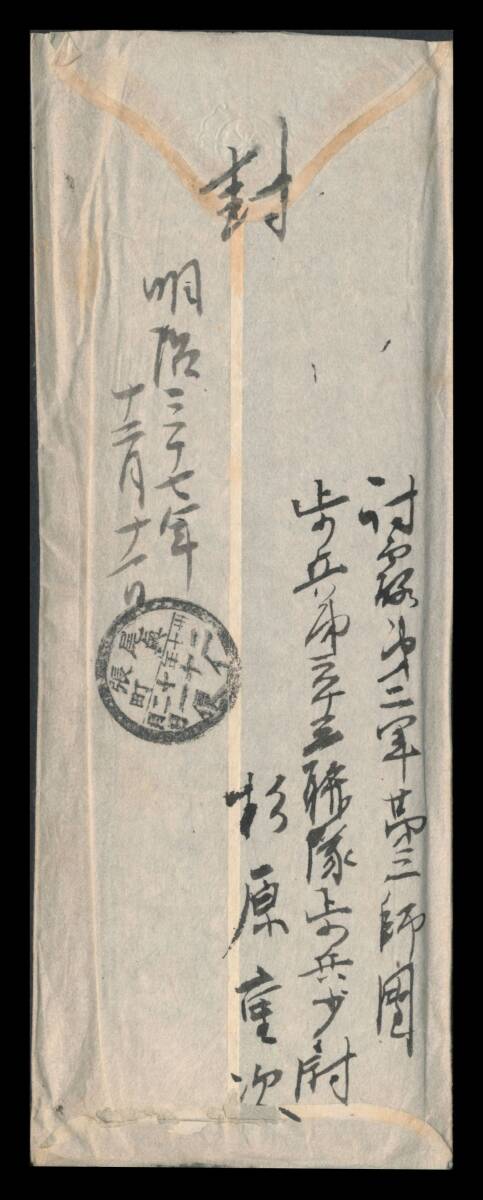 封
討露第二軍第三師團
歩兵第三十三聯隊歩兵少尉
杉原重次
明治三十七年
十二月十一日
尾張
町